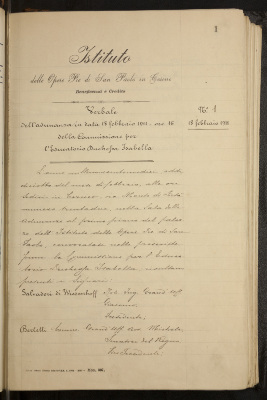 1
Istituto
delle Opere Pie di San Paolo in Torino
Beneficenza e Credito
Verbale
N.º 1
dell'adunanza in data 18 febbraio 1918 - ore 16
18 febbraio 1918
della Commissione per
l'Educatorio Duchessa Isabella
L'anno millenovecentodiciotto, addì
diciotto del mese di febbraio, alle ore
sedici in Torino, via Monte di Pietà
numero trentadue nella Sala delle
adunanze al primo piano del palazzo
dell'Istituto delle Opere Pie di San
Paolo, convocata nelle prescritte
forme la Commissione per l'Educatorio
Duchessa Isabella, risultano
presenti i Signori:
Salvadori di Wiesenhoff Ing. Grand. Uff.
Giacomo
Presidente
Senatore del Regno
Vice Presidente